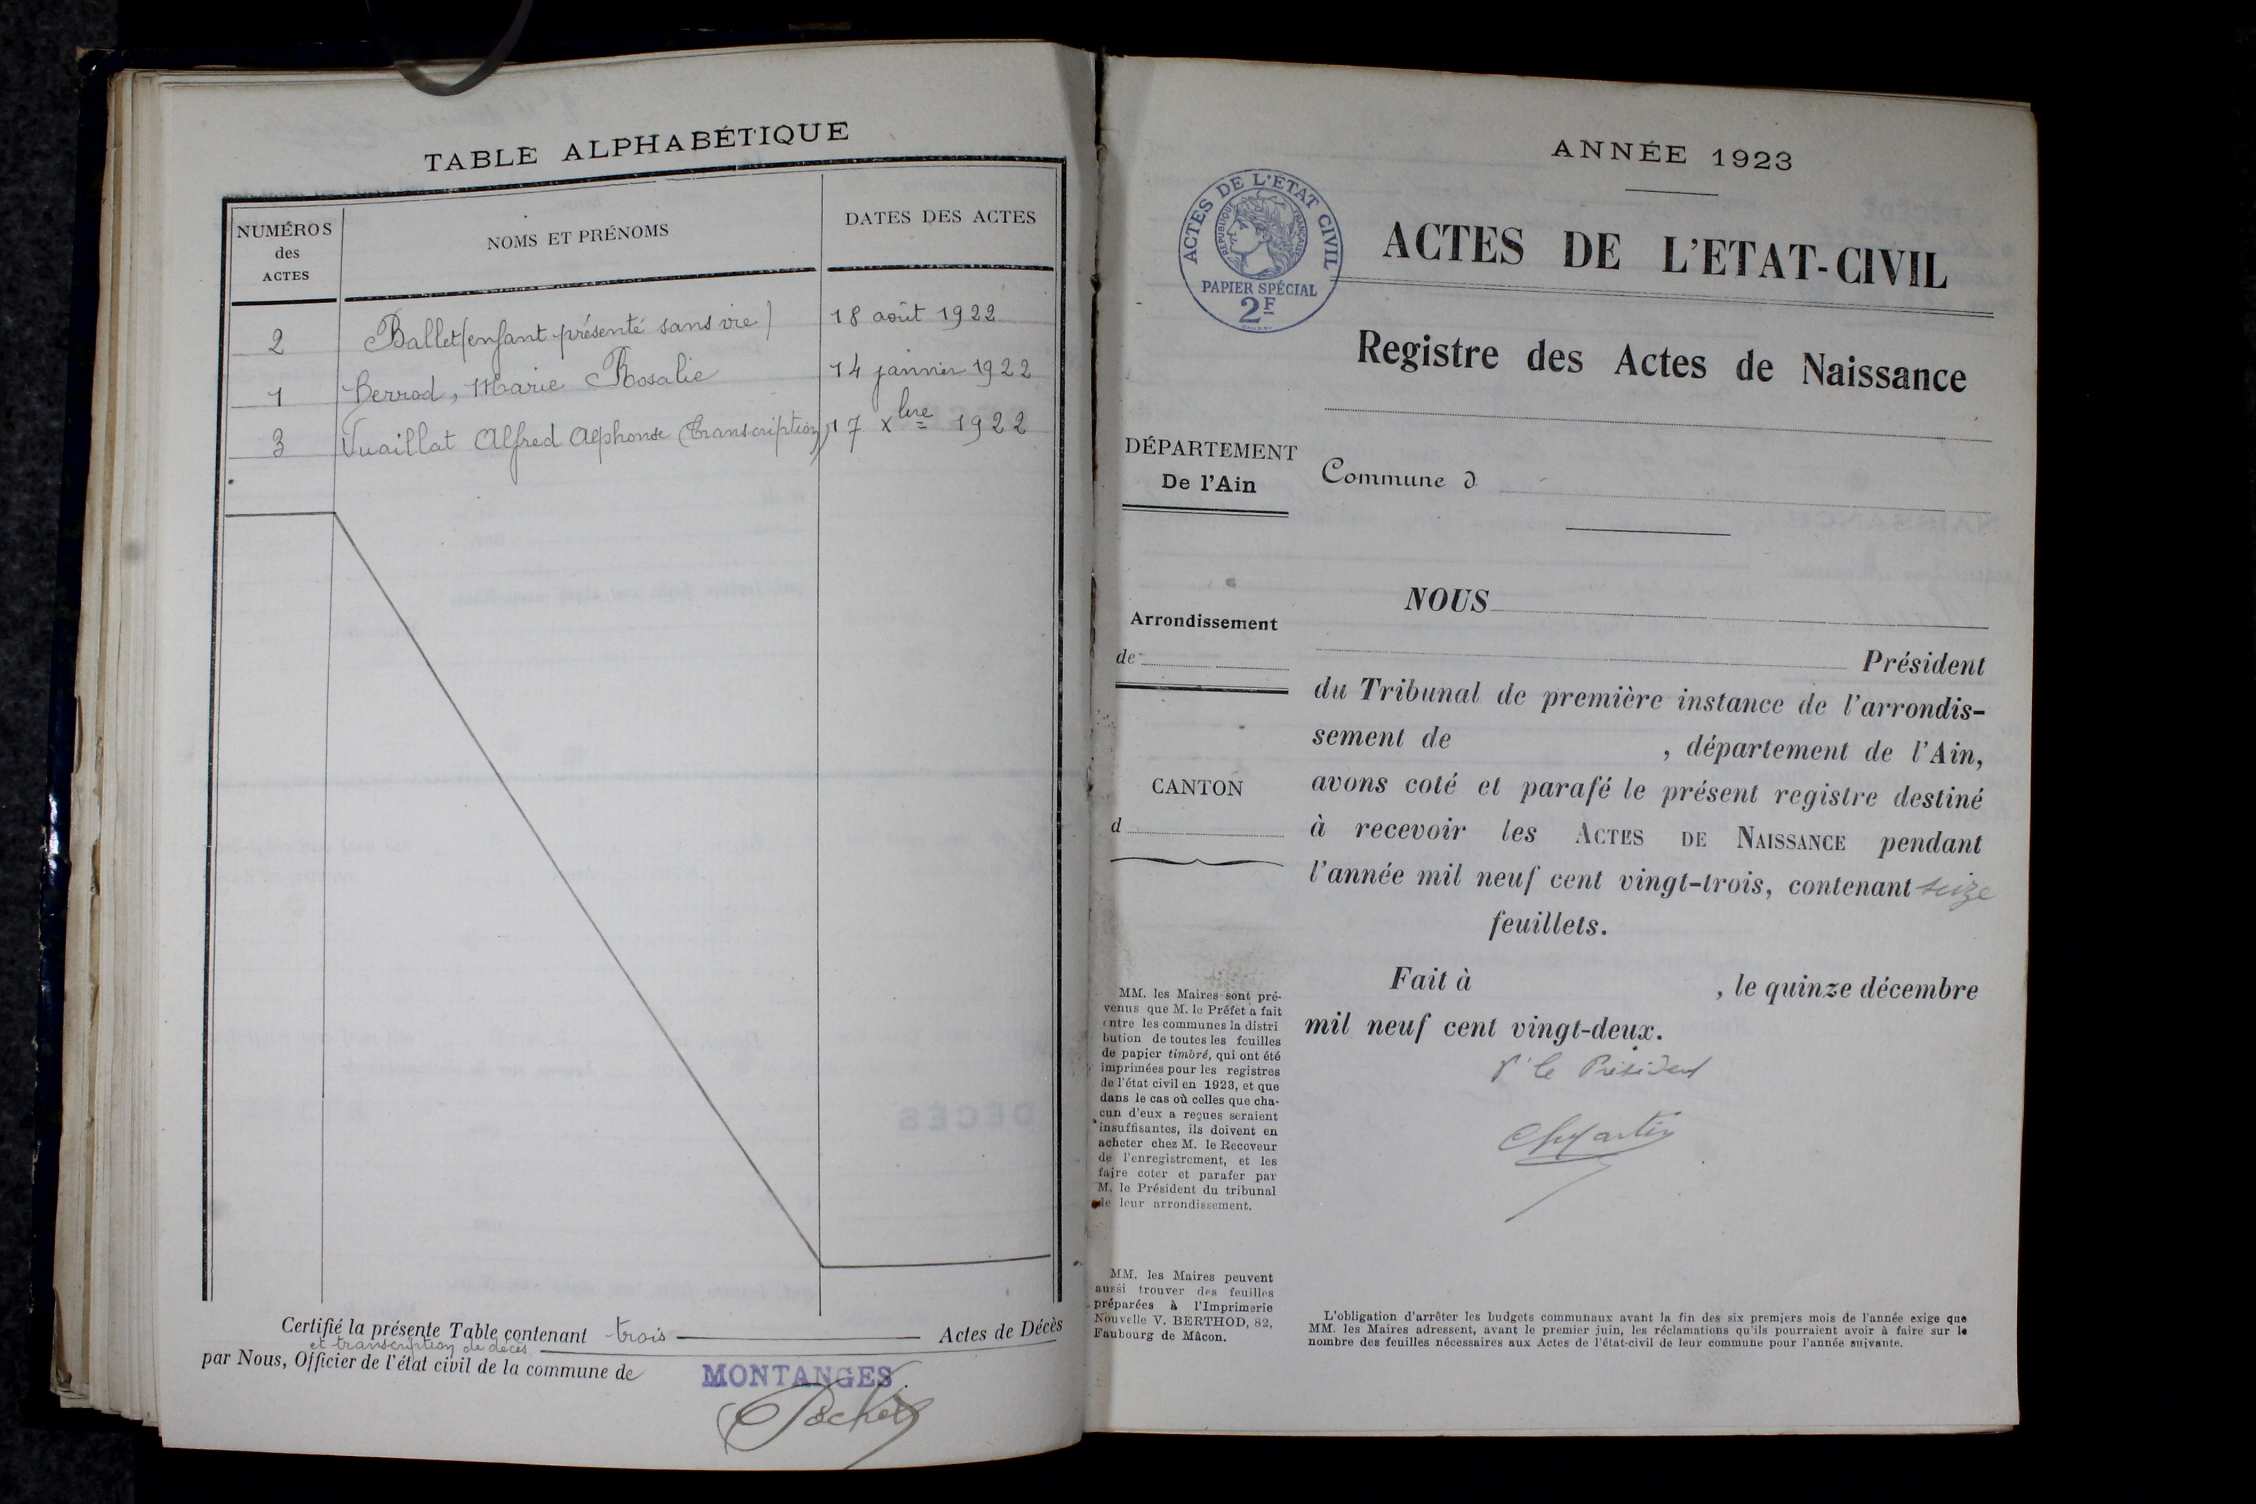 TABLE ALPHABÉTIQUE
NUMÉROS
des
ACTES
NOMS ET PRÉNOMS
DATES DES ACTES
2 Ballet (enfant présenté sans vie) 18 août 1922
1 Marie Rosalie 14 janvier 1922
3 Vuaillat Alfred Alphonse (Transcription) 17 xbre 1922
Certifié la présente Table contenant trois Actes de Décès
et transcription de décès
par Nous, Officier de l'état civil de la commune de MONTANGES
ANNÉE 1923
ACTES DE L'ETAT CIVIL
RÉPUBLIQUE FRANÇAISE
PAPIER SPÉCIAL
2F
ACTES DE L'ETAT-CIVIL
Registre des Actes de Naissance
DÉPARTEMENT
De l'Ain
Commune d
Arrondissement
de
CANTON
d
NOUS
Président
du Tribunal de première instance de l'arrondis-
sement de , département de l'Ain,
avons coté et parafé le présent registre destiné
à recevoir les ACTES DE NAISSANCE pendant
l'année mil neuf cent vingt-trois, contenant seize
feuillets.
Fait à , le quinze décembre
mil neuf cent vingt-deux.
Pr le Président
MM. les Maires sont pré-
venus que M. le Préfet a fait
entre les communes la distri
bution de toutes les feuilles
de papier timbré, qui ont été
imprimées pour les registres
de l'état civil en 1923, et que
dans le cas où celles que cha-
cun d'eux a reçues seraient
insuffisantes, ils doivent en
acheter chez M. le Receveur
de l'enregistrement, et les
faire coter et parafer par
M. le Président du tribunal
de leur arrondissement.
MM. les Maires peuvent
aussi trouver des feuilles
préparées à l'Imprimerie
Nouvelle V. BERTHOD, 82,
Faubourg de Mâcon.
L'obligation d'arrêter les budgets communaux avant la fin des six premiers mois de l'année exige que
MM. les Maires adressent, avant le premier juin, les réclamations qu'ils pourraient avoir à faire sur le
nombre des feuilles nécessaires aux Actes de l'état-civil de leur commune pour l'année suivante.